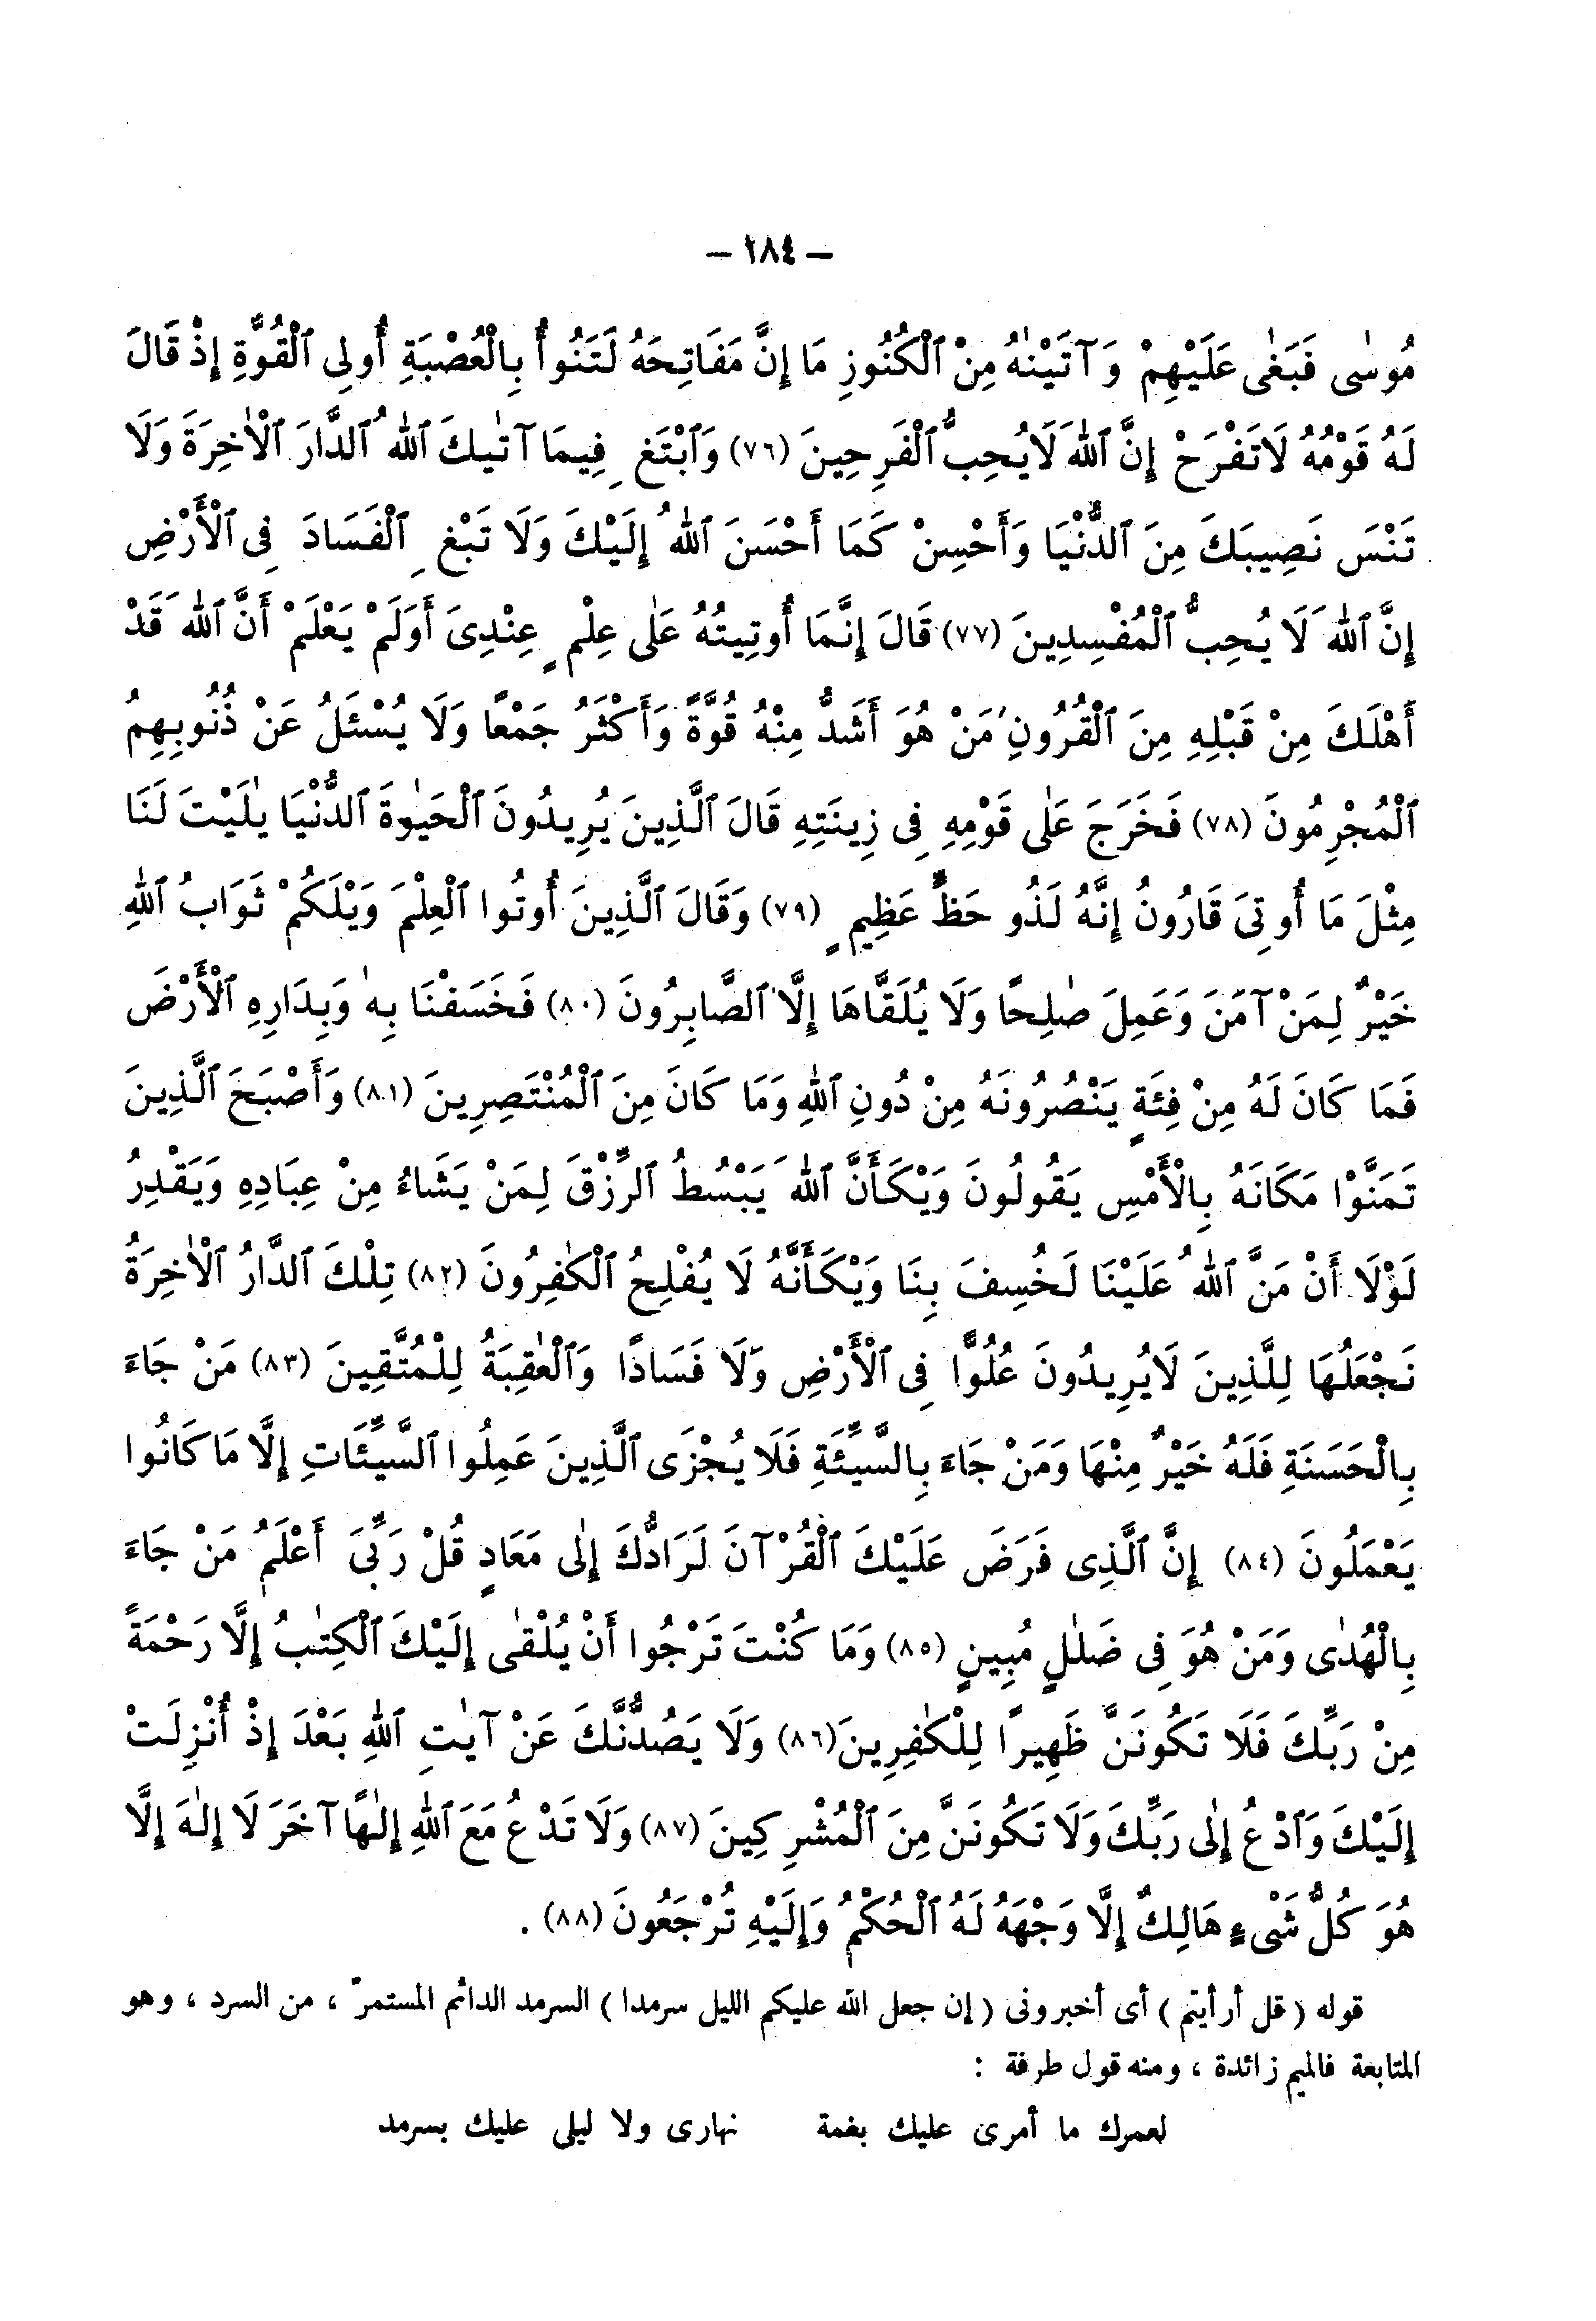 — ١٨٤ —
مُوسٰى فَبَغٰى عَلَيْهِمْ وَآتَيْنٰهُ مِنْ ٱلْكُنُوزِ مَا إِنَّ مَفَاتِحَهُ لَتَنُوأُ بِالْعُصْبَةِ أُولِى ٱلْقُوَّةِ إِذْ قَالَ
لَهُ قَوْمُهُ لَاتَفْرَحْ إِنَّ ٱللّٰهَ لَايُحِبُّ ٱلْفَرِحِينَ (٧٦) وَٱبْتَغِ فِيمَا آتٰيكَ ٱللّٰهُ ٱلدَّارَ ٱلْأٰخِرَةَ وَلَا
تَنْسَ نَصِيبَكَ مِنَ ٱلدُّنْيَا وَأَحْسِنْ كَمَا أَحْسَنَ ٱللّٰهُ إِلَيْكَ وَلَا تَبْغِ ٱلْفَسَادَ فِى ٱلْأَرْضِ
إِنَّ ٱللّٰهَ لَا يُحِبُّ ٱلْمُفْسِدِينَ (٧٧) قَالَ إِنَّمَا أُوتِيتُهُ عَلٰى عِلْمٍ عِنْدِىَ أَوَلَمْ يَعْلَمْ أَنَّ ٱللّٰهَ قَدْ
أَهْلَكَ مِنْ قَبْلِهِ مِنَ ٱلْقُرُونِ مَنْ هُوَ أَشَدُّ مِنْهُ قُوَّةً وَأَكْثَرُ جَمْعًا وَلَا يُسْئَلُ عَنْ ذُنُوبِهِمُ
ٱلْمُجْرِمُونَ (٧٨) فَخَرَجَ عَلٰى قَوْمِهِ فِى زِينَتِهِ قَالَ ٱلَّذِينَ يُرِيدُونَ ٱلْحَيٰوةَ ٱلدُّنْيَا يٰلَيْتَ لَنَا
مِثْلَ مَا أُوتِىَ قَارُونُ إِنَّهُ لَذُو حَظٍّ عَظِيمٍ (٧٩) وَقَالَ ٱلَّذِينَ أُوتُوا ٱلْعِلْمَ وَيْلَكُمْ ثَوَابُ ٱللّٰهِ
خَيْرٌ لِمَنْ آمَنَ وَعَمِلَ صٰلِحًا وَلَا يُلَقَّاهَا إِلَّا ٱلصَّابِرُونَ (٨٠) فَخَسَفْنَا بِهِ وَبِدَارِهِ ٱلْأَرْضَ
فَمَا كَانَ لَهُ مِنْ فِئَةٍ يَنْصُرُونَهُ مِنْ دُونِ ٱللّٰهِ وَمَا كَانَ مِنَ ٱلْمُنْتَصِرِينَ (٨١) وَأَصْبَحَ ٱلَّذِينَ
تَمَنَّوْا مَكَانَهُ بِالْأَمْسِ يَقُولُونَ وَيْكَأَنَّ ٱللّٰهَ يَبْسُطُ ٱلرِّزْقَ لِمَنْ يَشَاءُ مِنْ عِبَادِهِ وَيَقْدِرُ
لَوْلَا أَنْ مَنَّ ٱللّٰهُ عَلَيْنَا لَخُسِفَ بِنَا وَيْكَأَنَّهُ لَا يُفْلِحُ ٱلْكٰفِرُونَ (٨٢) تِلْكَ ٱلدَّارُ ٱلْأٰخِرَةُ
نَجْعَلُهَا لِلَّذِينَ لَايُرِيدُونَ عُلُوًّا فِى ٱلْأَرْضِ وَلَا فَسَادًا وَٱلْعٰقِبَةُ لِلْمُتَّقِينَ (٨٣) مَنْ جَاءَ
بِالْحَسَنَةِ فَلَهُ خَيْرٌ مِنْهَا وَمَنْ جَاءَ بِالسَّيِّئَةِ فَلَا يُجْزَى ٱلَّذِينَ عَمِلُوا ٱلسَّيِّئَاتِ إِلَّا مَا كَانُوا
يَعْمَلُونَ (٨٤) إِنَّ ٱلَّذِى فَرَضَ عَلَيْكَ ٱلْقُرْآنَ لَرَادُّكَ إِلٰى مَعَادٍ قُلْ رَبِّىَ أَعْلَمُ مَنْ جَاءَ
بِالْهُدٰى وَمَنْ هُوَ فِى ضَلٰلٍ مُبِينٍ (٨٥) وَمَا كُنْتَ تَرْجُوا أَنْ يُلْقٰى إِلَيْكَ ٱلْكِتٰبُ إِلَّا رَحْمَةً
مِنْ رَبِّكَ فَلَا تَكُونَنَّ ظَهِيرًا لِلْكٰفِرِينَ (٨٦) وَلَا يَصُدُّنَّكَ عَنْ آيٰتِ ٱللّٰهِ بَعْدَ إِذْ أُنْزِلَتْ
إِلَيْكَ وَٱدْعُ إِلٰى رَبِّكَ وَلَا تَكُونَنَّ مِنَ ٱلْمُشْرِكِينَ (٨٧) وَلَا تَدْعُ مَعَ ٱللّٰهِ إِلٰهًا آخَرَ لَا إِلٰهَ إِلَّا
هُوَ كُلُّ شَىْءٍ هَالِكٌ إِلَّا وَجْهَهُ لَهُ ٱلْحُكْمُ وَإِلَيْهِ تُرْجَعُونَ (٨٨) .
قوله ( قل أرأيتم ) أى أخبرونى ( إن جعل الله عليكم الليل سرمدا ) السرمد الدائم المستمرّ ، من السرد ، وهو
المتابعة فالميم زائدة ، ومنه قول طرفة :
لعمرك ما أمرى عليك بغمة نهارى ولا ليلى عليك بسرمد